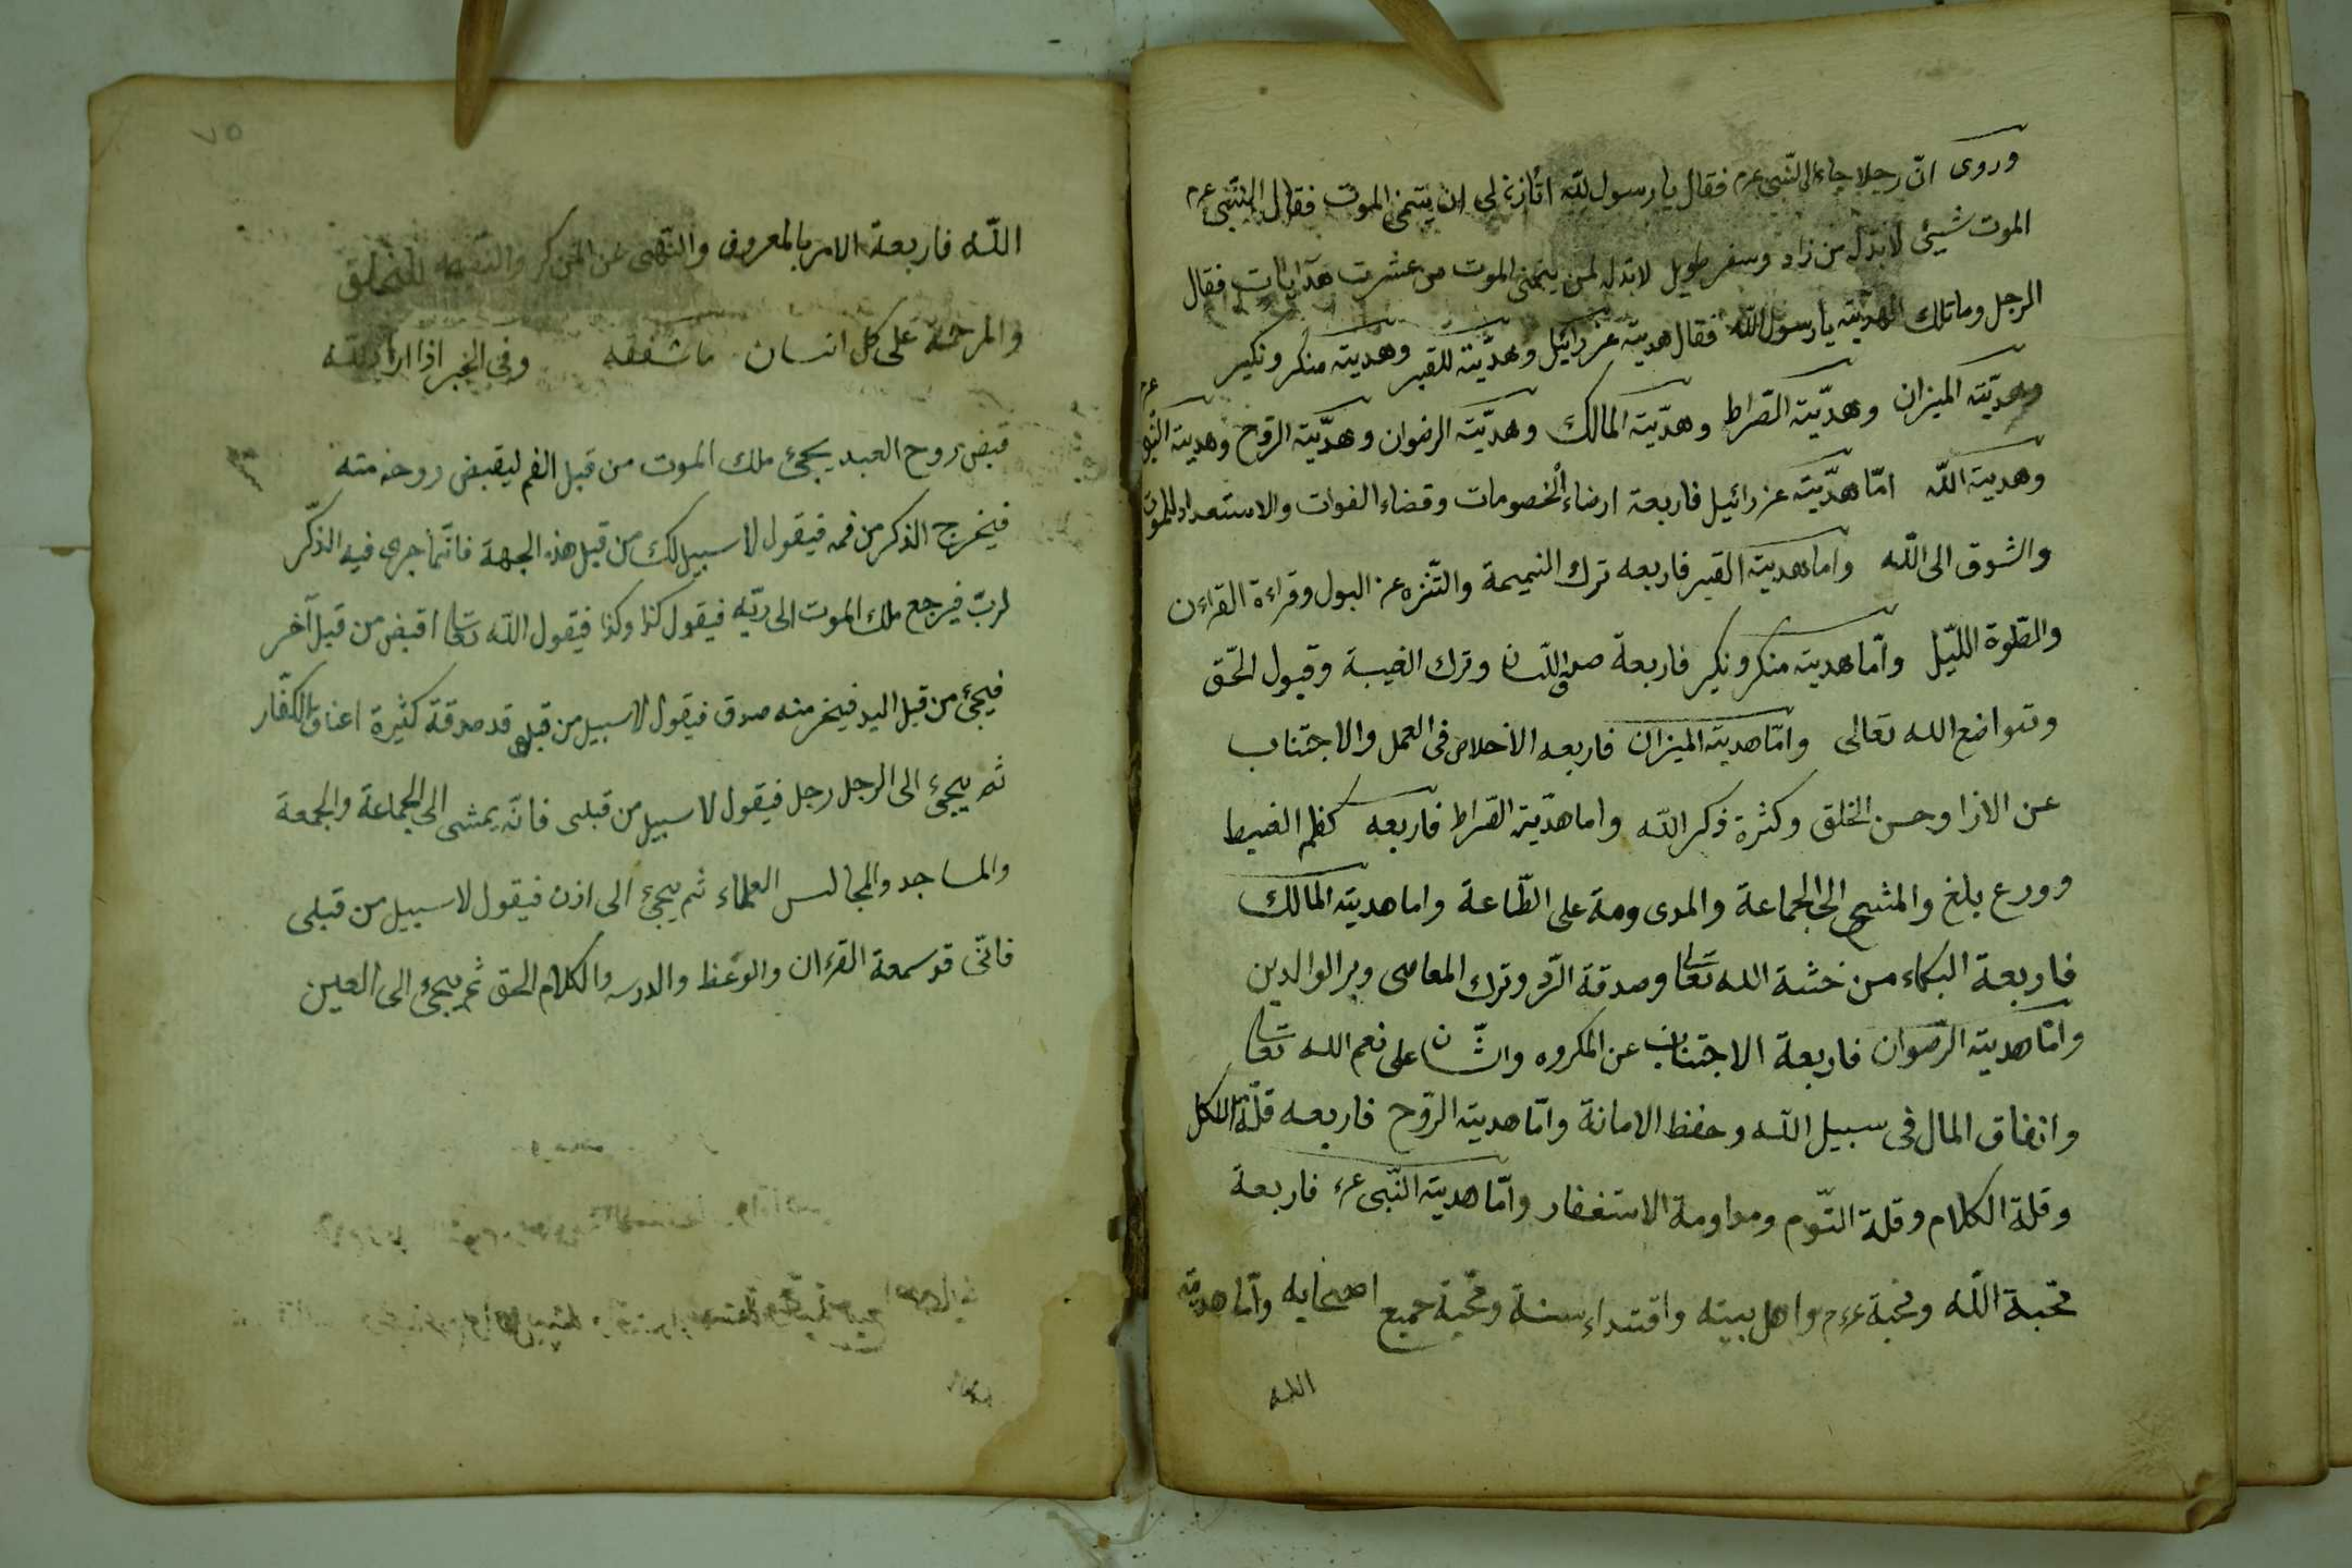 وروى انّ رجلا جاء الى النّبى عم فقال يا رسول الله لى ان يتمنى الموت فقال النّبى عم
الموت شيئ لا بدّ له من زاد وسفر طويل لا بدّ له لمن يتمنى الموت من عشرت هدايات فقال
الرجل وما تلك الهديّته يا رسول الله فقال هديّة عزرائيل وهديّته للقبر وهديته منكر ونكير
وهديّته الميزان وهديّته الصّراط وهديّته المالك وهديّته الرضوان وهديّته الرّوح وهديته النّبى عم
وهديته اللّه امّا هديّته عزرائيل فاربعة ارضاء الخصومات وقضاء الفوات والاستعداد للموت
والشوق الى اللّه واما هديته القبر فاربعه ترك النميمة والتّنزه عن البول وقراءة القراءن
والصّلوة اللّيل وامّا هديته منكر ونكير فاربعة صدق اللسان وترك الغيبة وقبول الحّق
وتتواضع الله تعالى وامّا هديته الميزان فاربعه الأخلاص فى العمل والاجتناب
عن الازا وحسن الخلق وكثرة ذكر اللّه واما هديّته الصّراط فاربعه كظم الغيط
وورع بلغ والمشى الى الجماعة والمدى ومة على الطّاعة واما هديته المالك
فاربعة البكاء من خشة الله تعا وصدقة السّر وترك المعاصى وبر الوالدين
وامّا هديته الرّضوان فاربعة الاجتناب عن المكروه على نعم الله تعا
وانفاق المال فى سبيل اللّه وحفظ الامانة وامّا هديته الرّوح فاربعه قلّة الاكل
وقلة الكلام وقلة النّوم ومداومة الاستغفار وامّا هديته النّبى عم فاربعة
محّبة اللّه ومحّبة عم واهل بيته واقتداء سنة ومحّبة جميع اصحابه وامّا هديّته
الله
٧٥
اللّه فاربعة الامر بالمعروف والنّهى عن المنكر للخلق
والمرحمة على كل انسان ما شفقه وفى الخبر اذا اراد الله
قبض روح العبد يجئ ملك الموت من قبل الفم ليقبض روحه منه
فيخرج الذكر من فمه فيقول لا سبيل لك من قبل هذه الجهة فانّما جرى فيه الذّكر
لربّ فيرجع ملك الموت الى ربّه فيقول كذا وكذا فيقول اللّه تعا اقبض من قبل آخر
فيجئ من قبل اليد فيخر منه صدق فيقول لا سبيل من قبلى قد صدقة كثيرة اعناق الكفّار
ثم يجئ الى الرجل رجل فيقول لا سبيل من قبلى فانّه يمشى الى الجماعة والجمعة
والمساجد والمجالس العلماء ثم يجئ الى اذن فيقول لا سبيل من قبلى
فانّى قد سمعة القرءان والوعظ والدرس والكلام الحق ثم يجئ الى العين